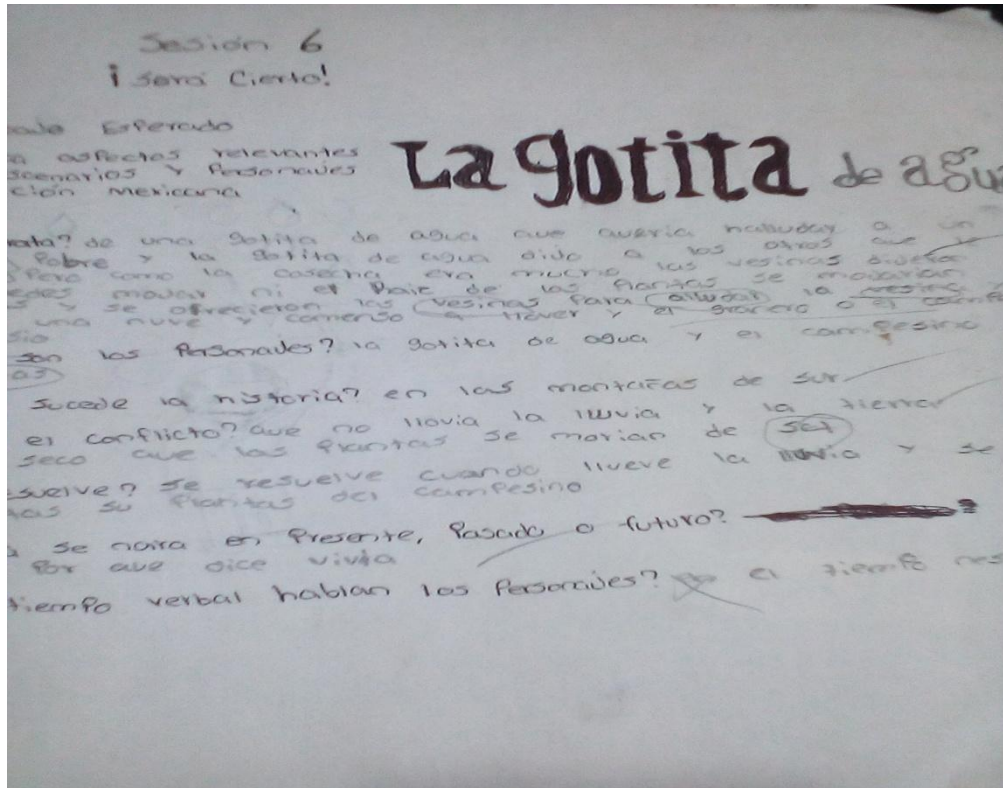 Sesión 6
¡será Cierto!
Esperado
aspectos relevantes
scenarios y Personajes
ción mexicana
La gotita de agu
de una gotita de agua que queria a un
Pobre y la gotita de agua oido a los otros que
Pero como la cosecha era mucho las vesinas
mojar ni el de las Plantas se
y se ofrecieron las vesinas Para alludar la
una nuve y comenso a llover y el granero o el
son los Personajes? la gotita de agua y el campesino
as
sucede la historia? en las montañas de sur
el conflicto? que no llovia la lluvia y la tierra
seco que las Plantas se morian de set
suelve? se resuelve cuando llueve la lluvia y se
tas su Plantas del campesino
se narra en Presente, Pasado o futuro?
Por que dice vivia
tiempo verbal hablan los Personajes? el tiempo